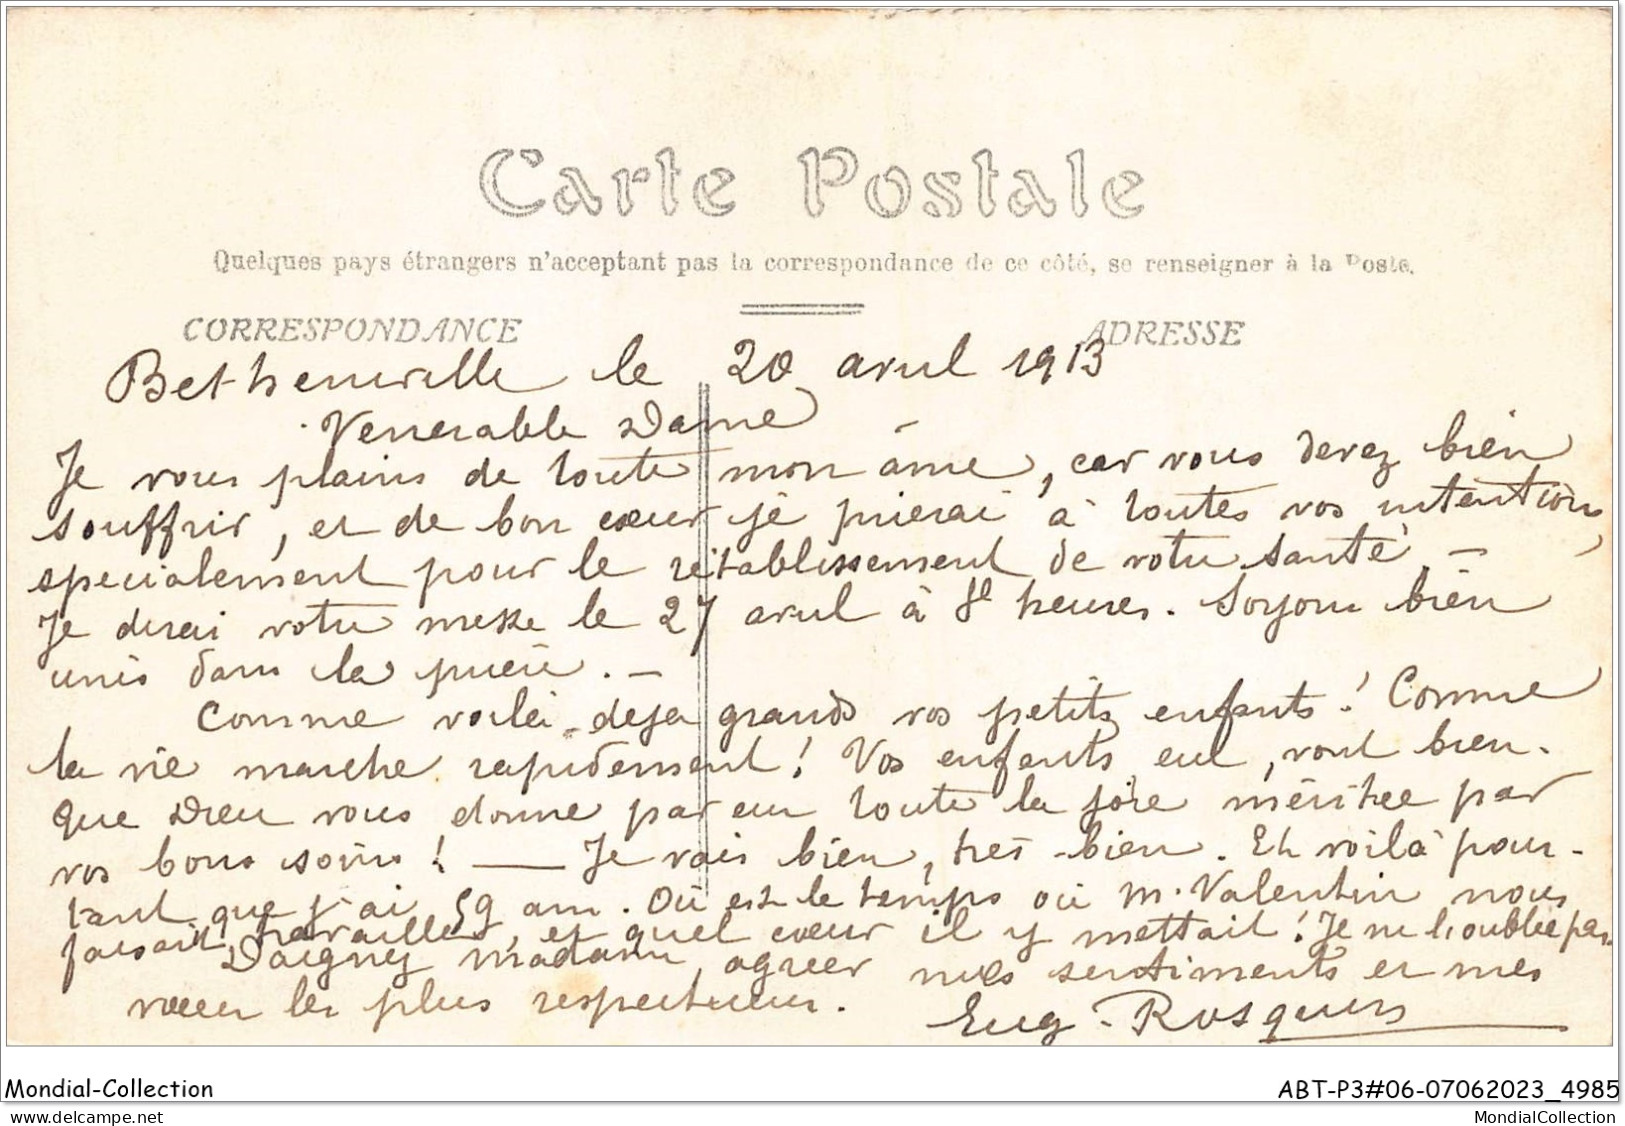 Carte Postale
Quelques pays étrangers n'acceptant pas la correspondance de ce côté, se renseigner à la Poste.
CORRESPONDANCE
ADRESSE
Betheniville le 20 avril 1913
Venerable Dame
Je vous plains de toute mon âme, car vous devez bien
souffrir, et de bon cœur je prierai à toutes vos intentions,
specialement pour le rétablissement de votre santé. —
Je dirai votre messe le 27 avril à 8h heures. Soyons bien
unis dans la prière. —
Comme voilà deja grands vos petits enfants! Comme
la vie marche rapidement! Vos enfants, eux, vont bien.
que Dieu vous donne par eux toute la joie méritée par
vos bons soins! — Je vais bien, très-bien. Et voilà pour-
tant que j'ai 59 ans. Où est le temps où M. Valentin nous
faisait travailler, et quel cœur il y mettait! Je ne l'oublie pas.
Daignez, madame, agréer mes sentiments et mes
vœux les plus respectueux.
Eug.
Mondial-Collection
ABT-P3#06-07062023_4985
www.delcampe.net
MondialCollection